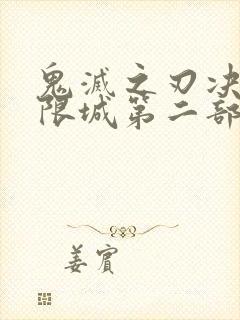 鬼滅之刃决
限城第二部
姜賓